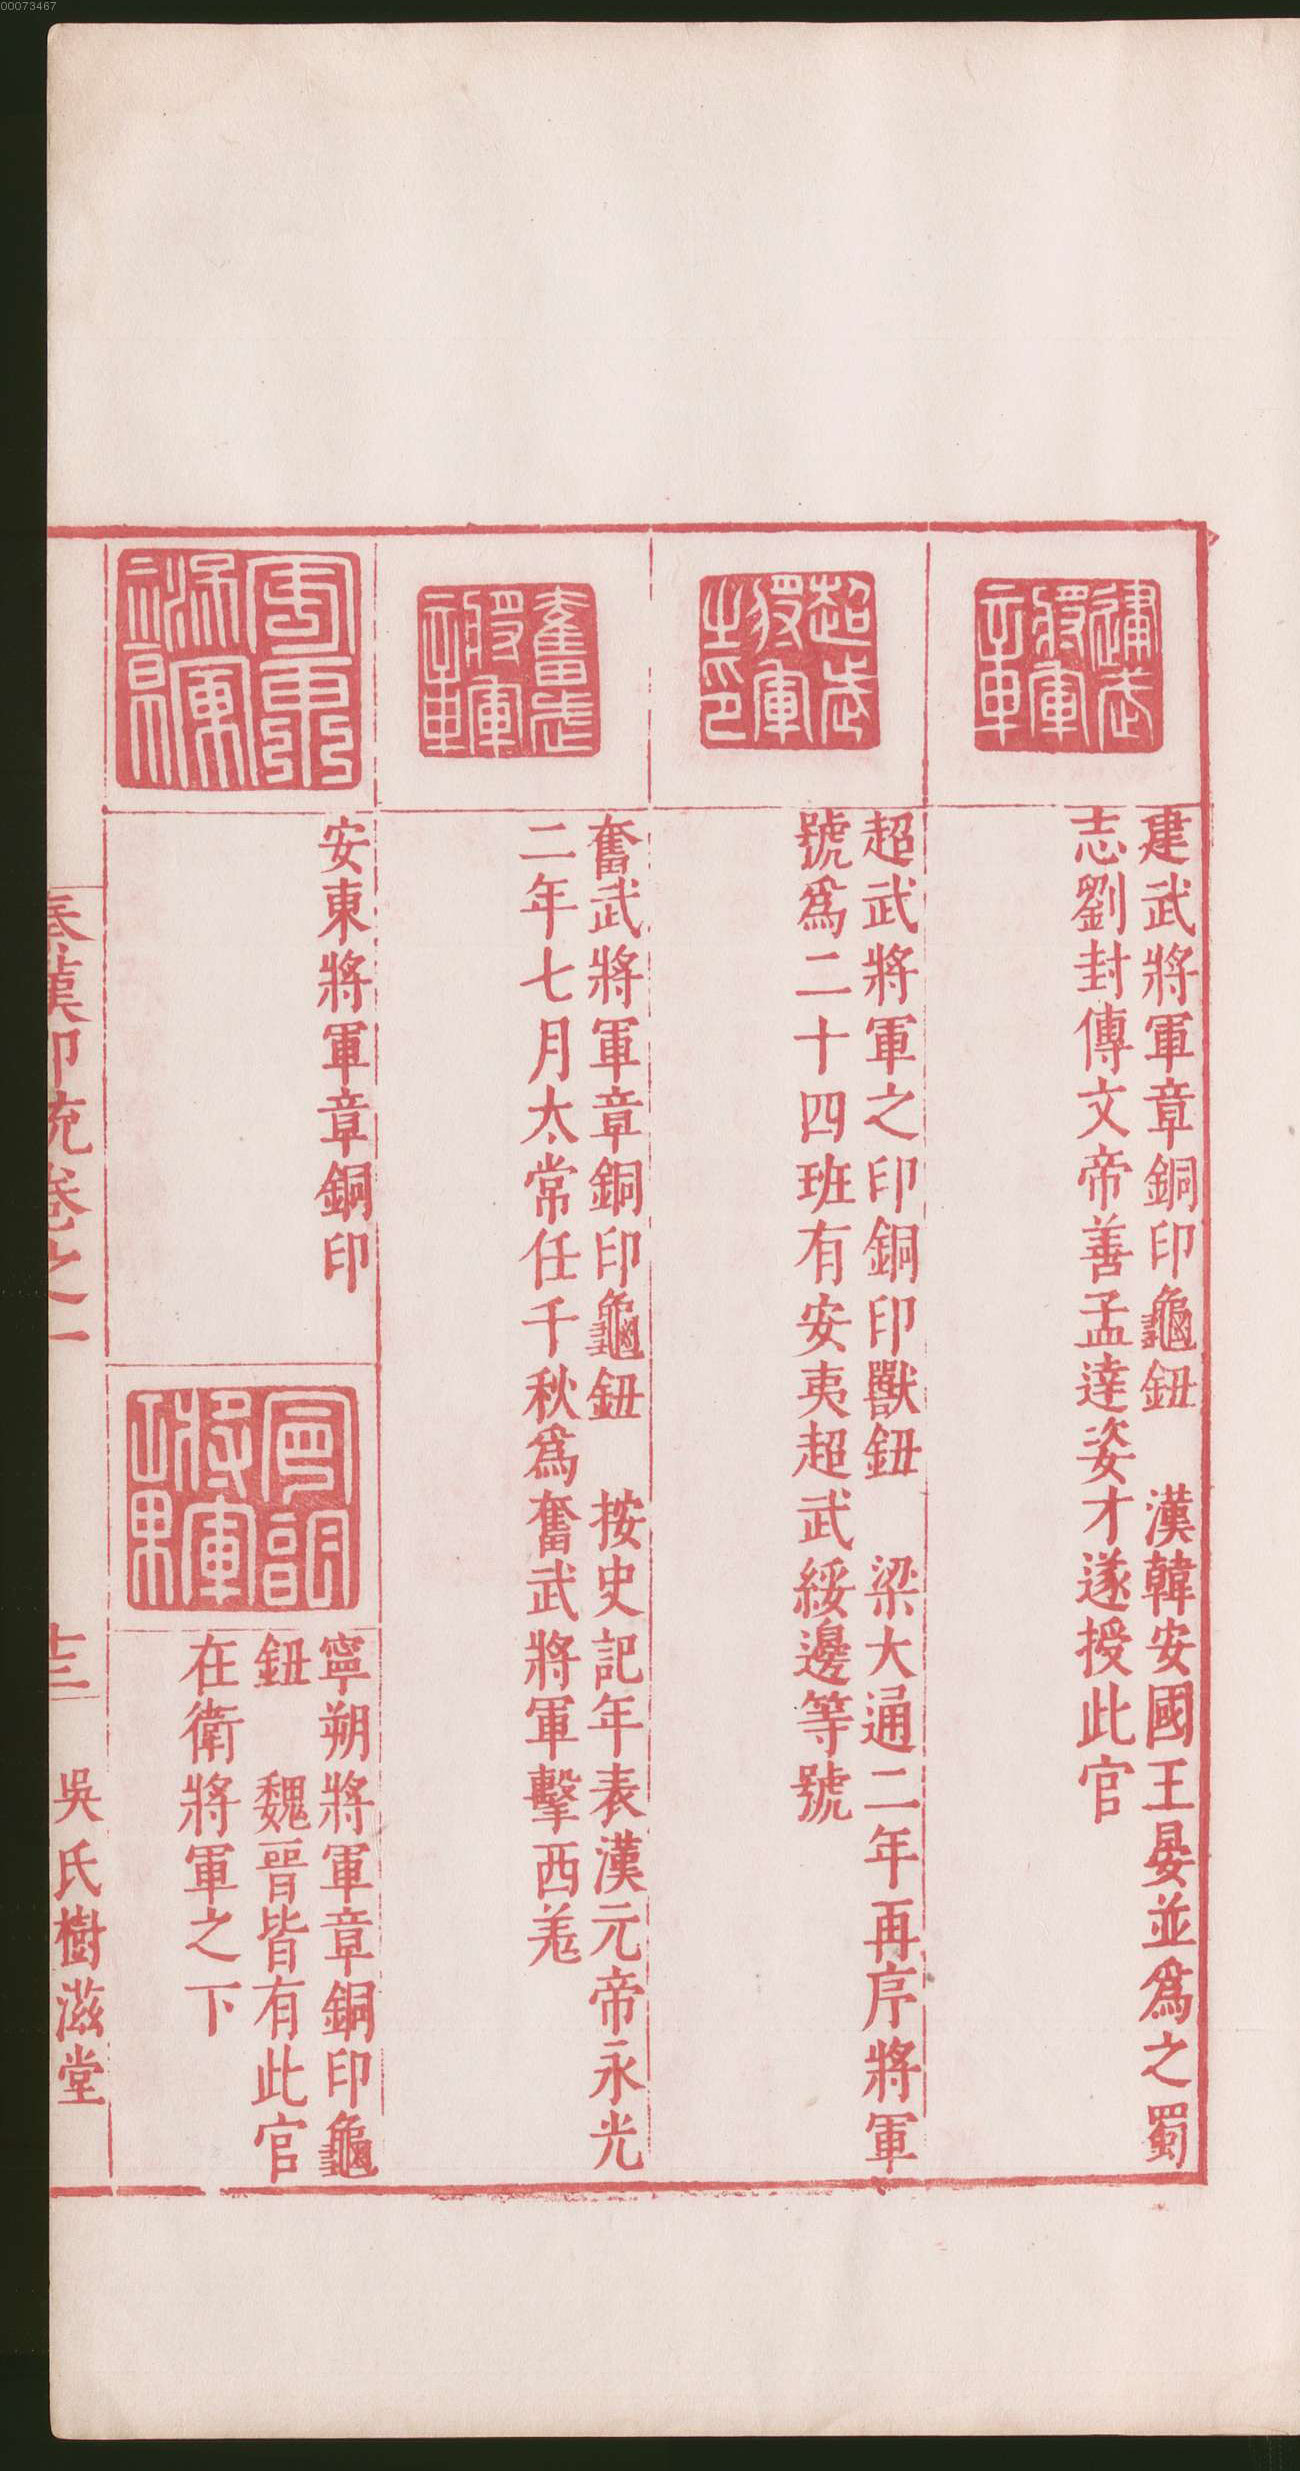 00073467
建武將軍章
建武將軍章銅印龜鈕　漢韓安國王晏並爲之蜀
志劉封傳文帝善孟達姿才遂授此官
超武將軍之印
超武將軍之印銅印獸鈕　梁大通二年再序將軍
號爲二十四班有安夷超武綏邊等號
奮武將軍章
奮武將軍章銅印龜鈕　按史記年表漢元帝永光
二年七月太常任千秋爲奮武將軍擊西羌
安東將軍章
安東將軍章銅印
寧朔將軍章
寧朔將軍章銅印龜
鈕　魏晉皆有此官
在衛將軍之下
秦漢印統卷之一
十三
吳氏樹滋堂